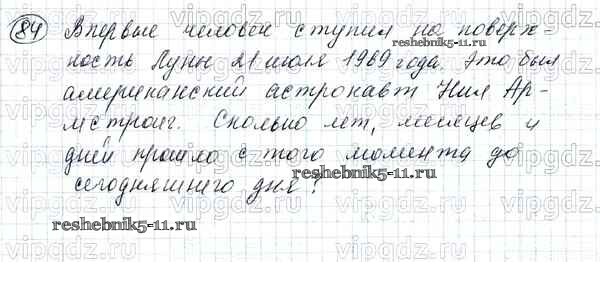 84 Впервые человек ступил на поверх-
ность Луны 21 июля 1969 года. Это был
американский астронавт Нил Ар-
мстронг. Сколько лет, месяцев и
дней прошло с того момента до
сегодняшнего дня?
reshebnik5-11.ru
reshebnik5-11.ru
reshebnik5-11.ru
vipgdz.com